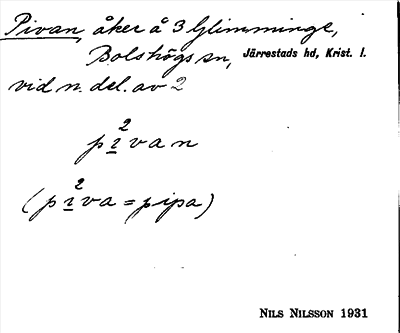 Pivan, åker å 3 Glimminge,
Bolshögs sn, Järrestads hd, Krist. l.
vid n. del. av 2
pɪ²van
(pɪ²va = pipa)
NILS NILSSON 1931